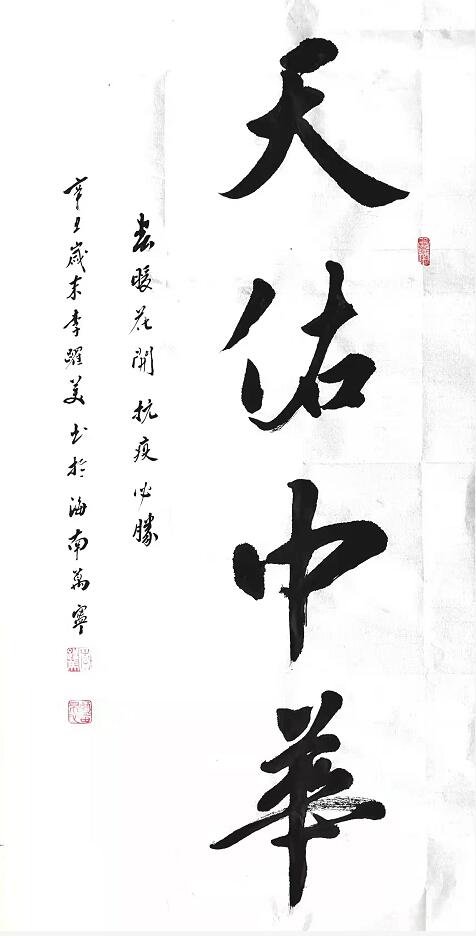 天佑中华
春暖花開抗疫必勝
辛丑歲末李躍美书於海南萬寧